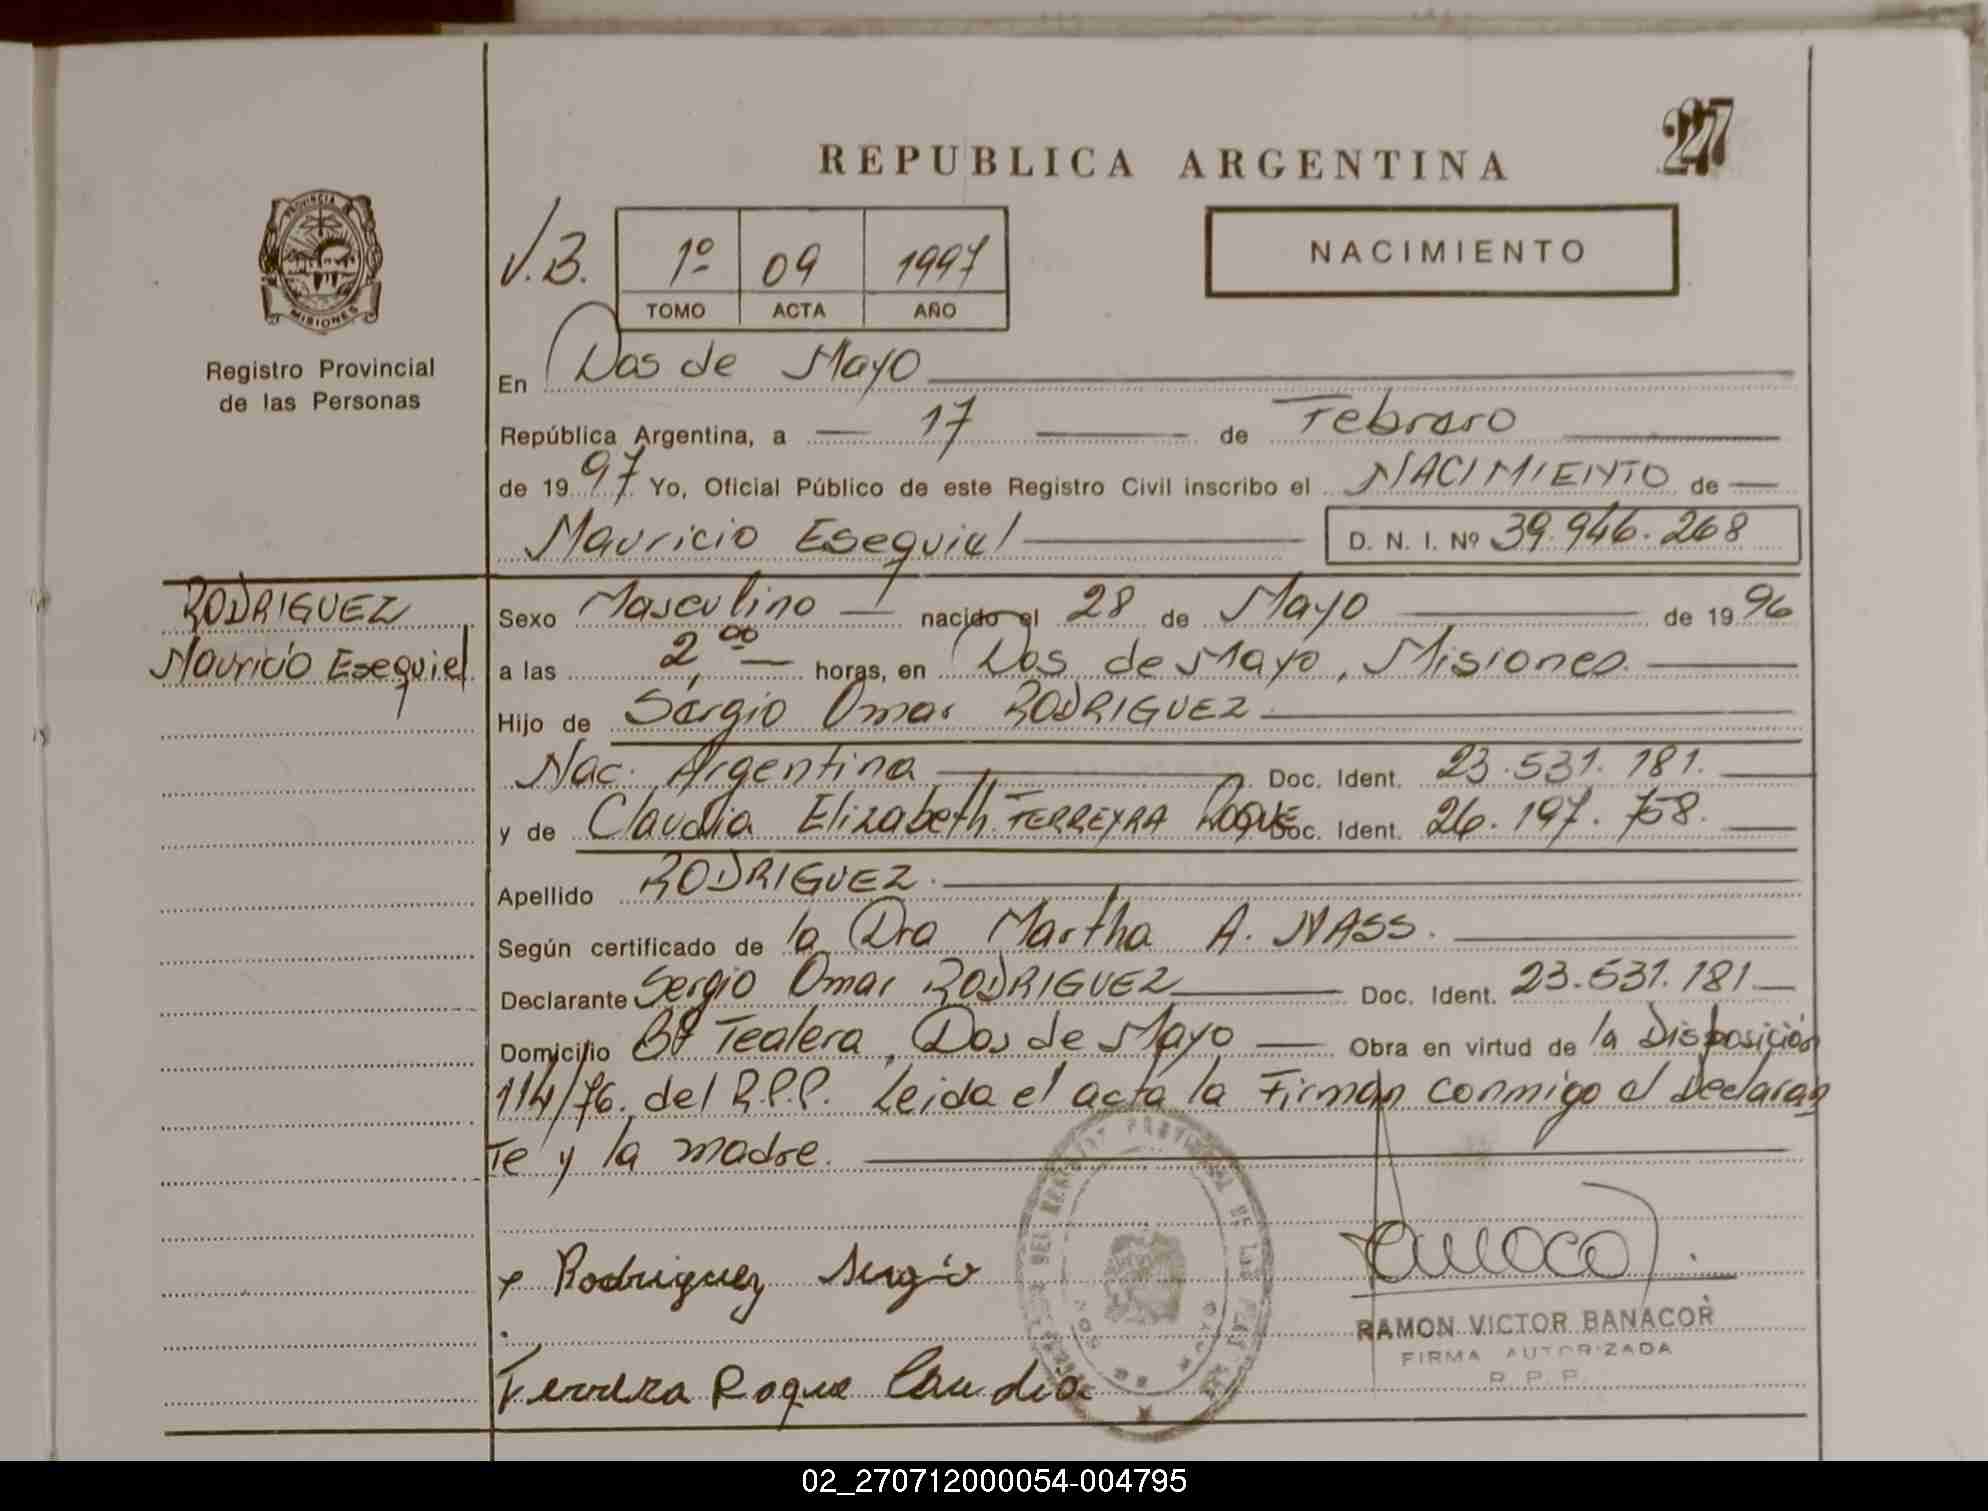 27
REPUBLICA ARGENTINA
PROVINCIA DE
MISIONES
Registro Provincial
de las Personas
V.B.
1º 09 1997
TOMO ACTA AÑO
NACIMIENTO
En Dos de Mayo
República Argentina, a 17 de Febrero
de 1997 Yo, Oficial Público de este Registro Civil inscribo el NACIMIENTO de
Mauricio Esequiel D. N. I. Nº 39.946.268
RODRIGUEZ
Mauricio Esequiel
Sexo Masculino nacido el 28 de Mayo de 1996
a las 2,00 horas, en Dos de Mayo, Misiones.
Hijo de Sergio Omar RODRIGUEZ
Nac. Argentina Doc. Ident. 23.531.181.
y de Claudia Elizabeth FERREYRA Roque Doc. Ident. 26.197.758.
Apellido RODRIGUEZ.
Según certificado de la Dra Martha A. NASS.
Declarante Sergio Omar RODRIGUEZ Doc. Ident. 23.531.181
Domicilio Bº Tealera, Dos de Mayo Obra en virtud de la Disposición
114/76. del R.P.P. Leida el acta la Firman conmigo el Declaran
Te y la madre.
Rodriguez Sergio
RAMON VICTOR BANACOR
FIRMA AUTORIZADA
R. P. P.
Ferreira Roque Claudia
02_270712000054-004795